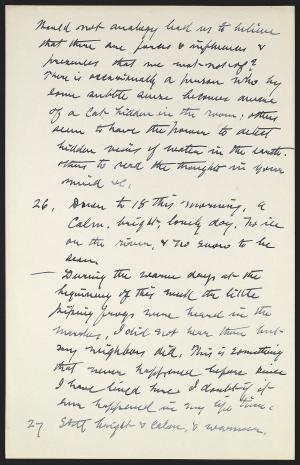 should not analogy lead us to believe
that there are forces & influences &
presences that we wot not of?
There is occasionally a person who by
some subtle sense becomes aware
of a cat hidden in the room; others
seem to have the power to detect
hidden veins of water in the earth.
others to read the thoughts in your
mind &c.
26, Down to 18 this morning, a
calm, bright, lovely day. No ice
on the river, & no snow to be
seen.
— During the warm days at the
beginning of this week the little
piping frogs were heard in the
marshes, I did not hear them but
my neighbors did. This is something
that never happened before since
I have lived here I doubt if it
ever happened in my life time.
27 Still bright & calm, & warmer.